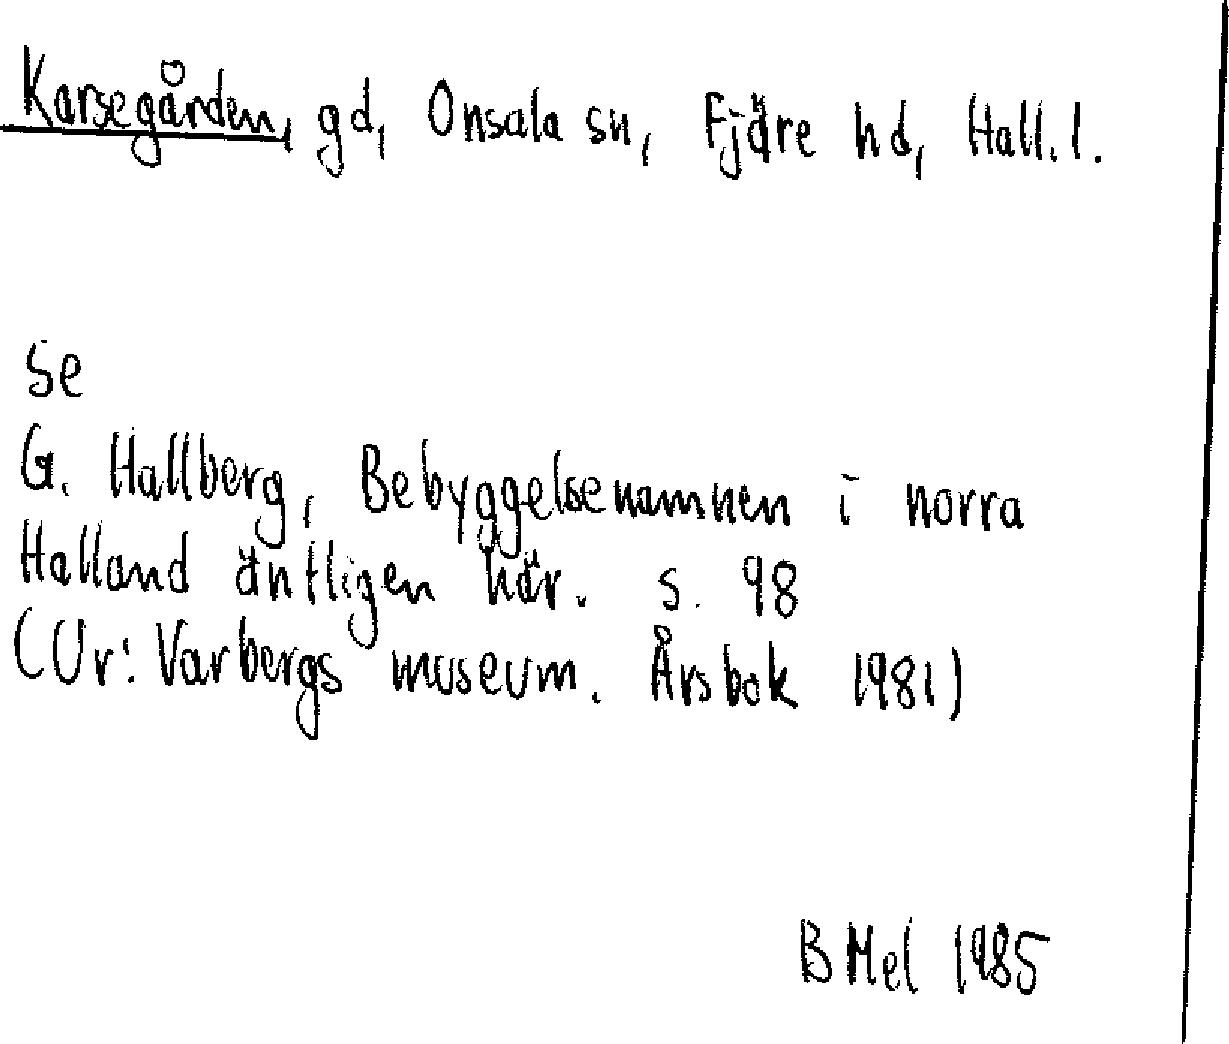 Karsegården, gd, Onsala sn, Fjäre hd, Hall. l.
Se
G. Hallberg, Bebyggelsenamnen i norra
Halland äntligen här. s. 98
(Ur: Varbergs museum. Årsbok 1981)
B Mel 1985